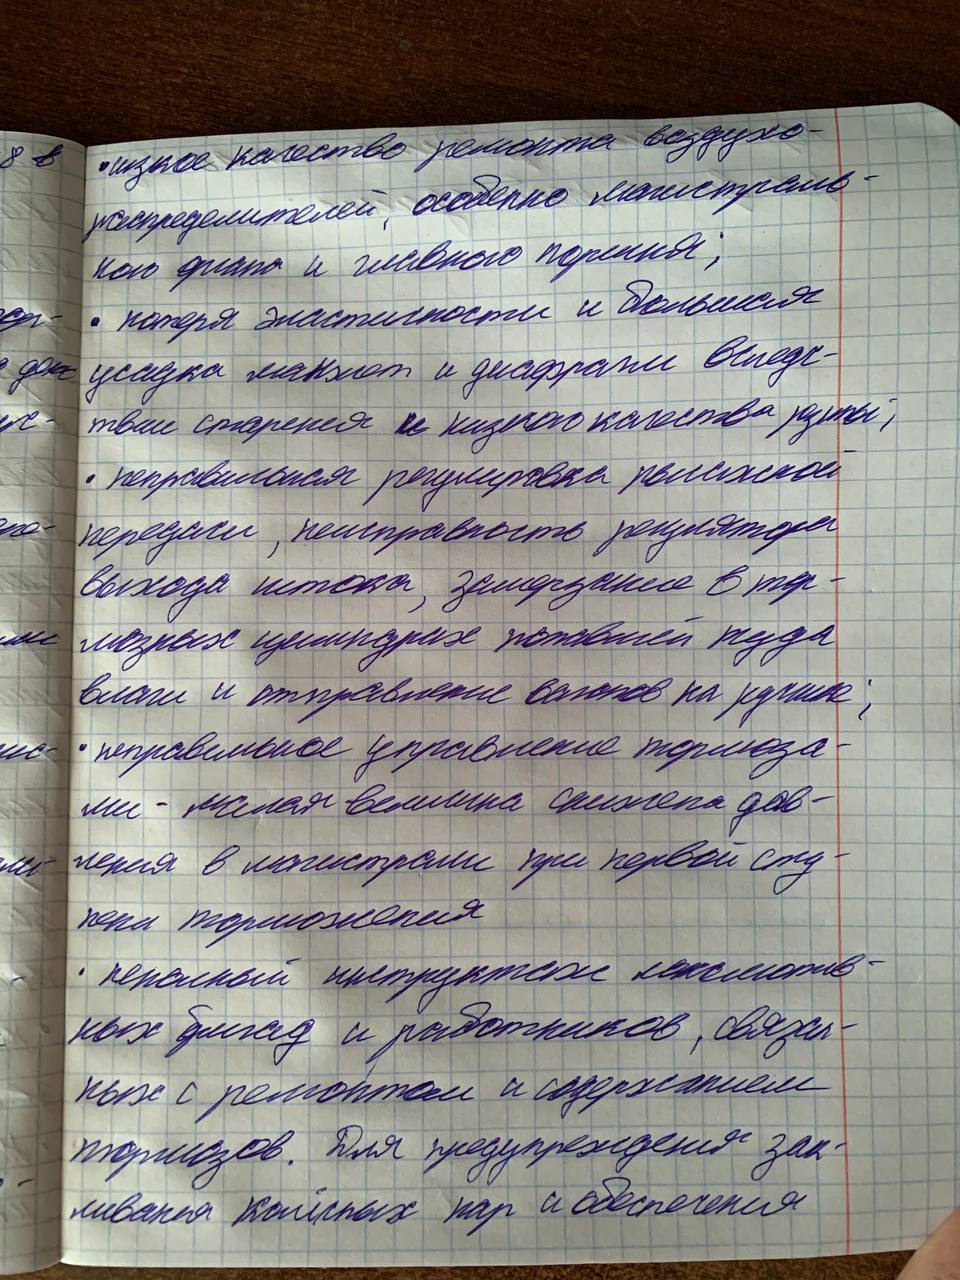 • низкое качество ремонта воздухо-
распределителей, особенно магистраль-
ного органа и главного поршня;
• потеря эластичности и большая
усадка манжет и диафрагм вследс-
твии старения и низкого качества резины;
• неправильная регулировка рычажной
передачи, неисправность регулятора
выхода штока, замерзание в тор-
мозных цилиндрах попавшей туда
влаги и отправление вагонов на ручнике;
• неправильное управление тормоза-
ми - малая величина снижена дав-
ления в магистрали при первой сту-
пени торможения
• неполный инструктаж локомотив-
ных бригад и работников, связан-
ных с ремонтом и содержанием
тормозов. Для предупреждения зак-
линивания колёсных пар и обеспечения